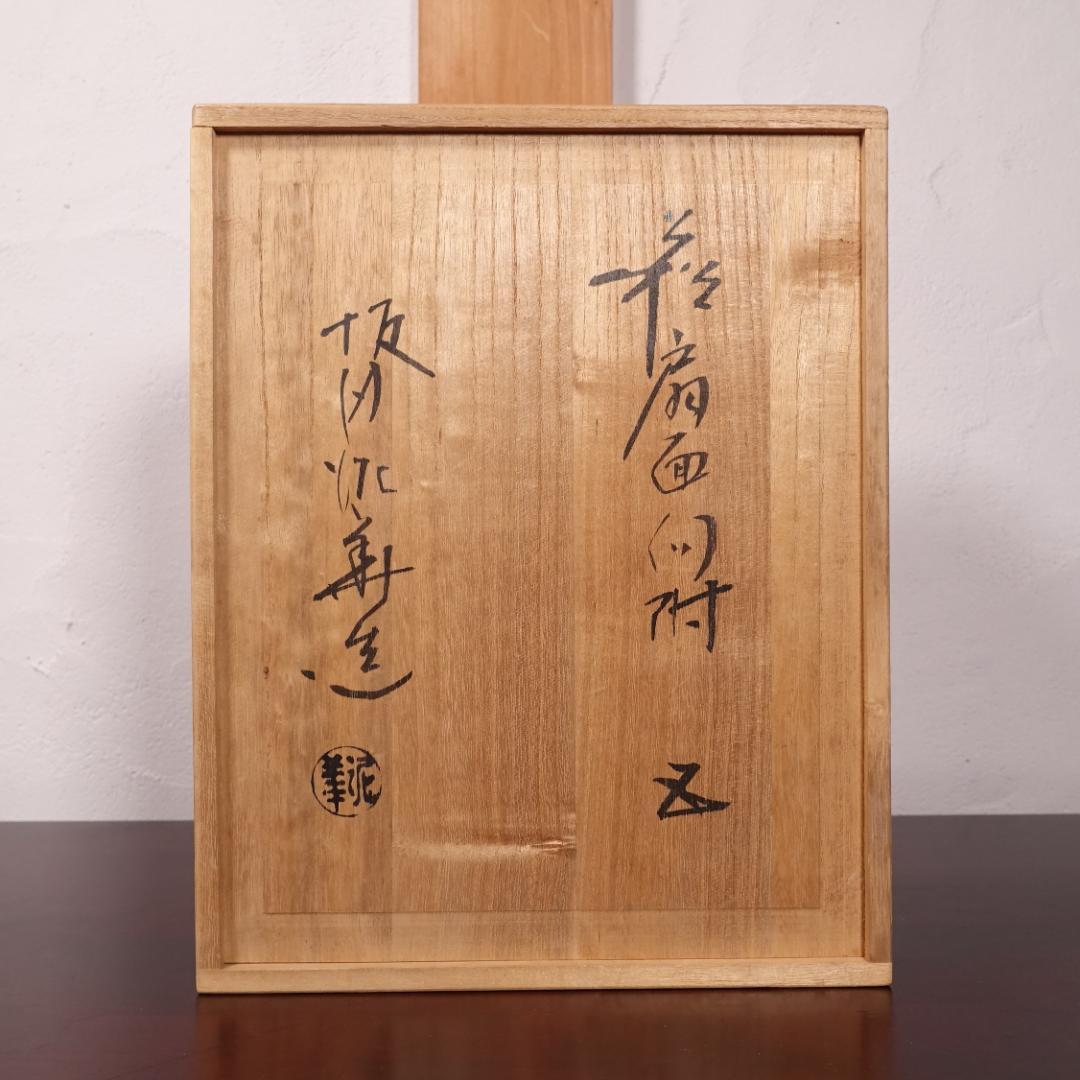 萩扇面向附 五
坂田泥華造
泥華